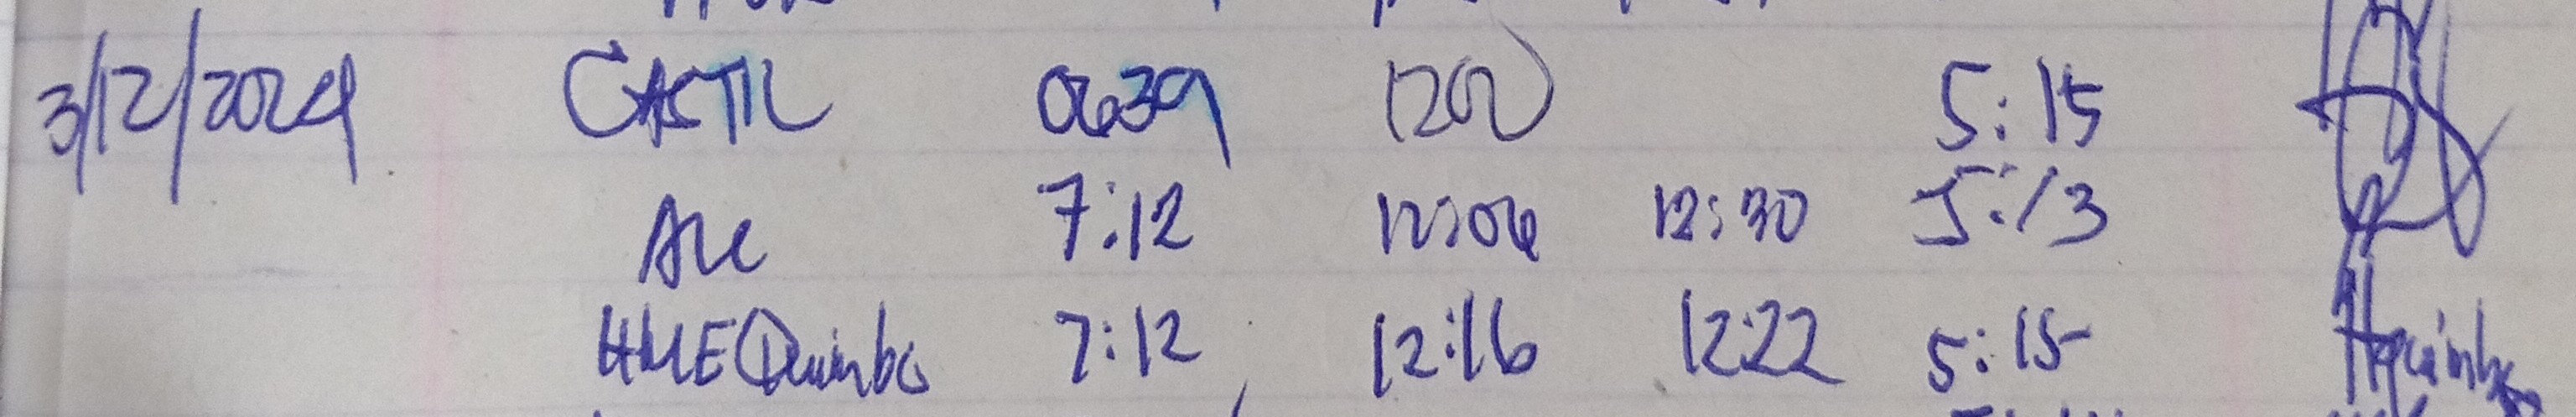 3/12/2024 CASTIL 0639 1200 5:15
7:12 12:06 12:30 5:13
HMEQuimbo 7:12 12:16 12:22 5:15 Hquimbo